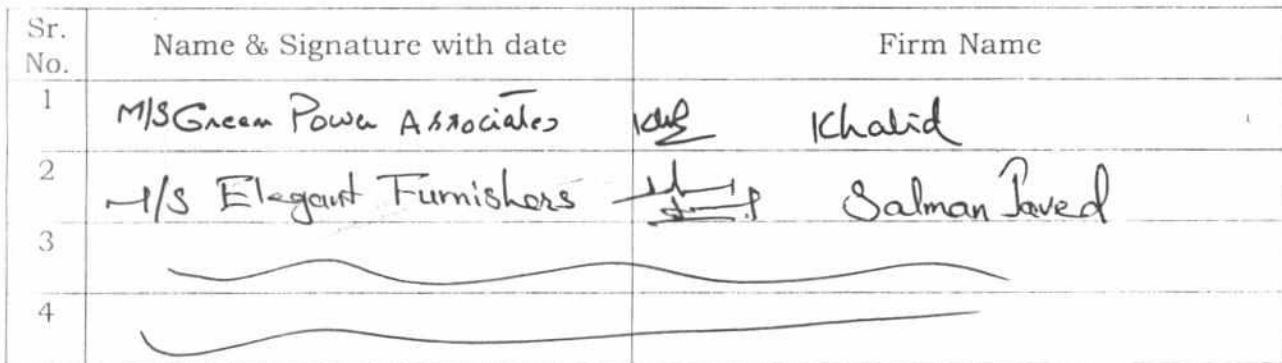 Sr. No. Name & Signature with date Firm Name
1 M/S Green Power Associates Khalid
2 M/S Elegant Furnishers Salman Javed
3
4